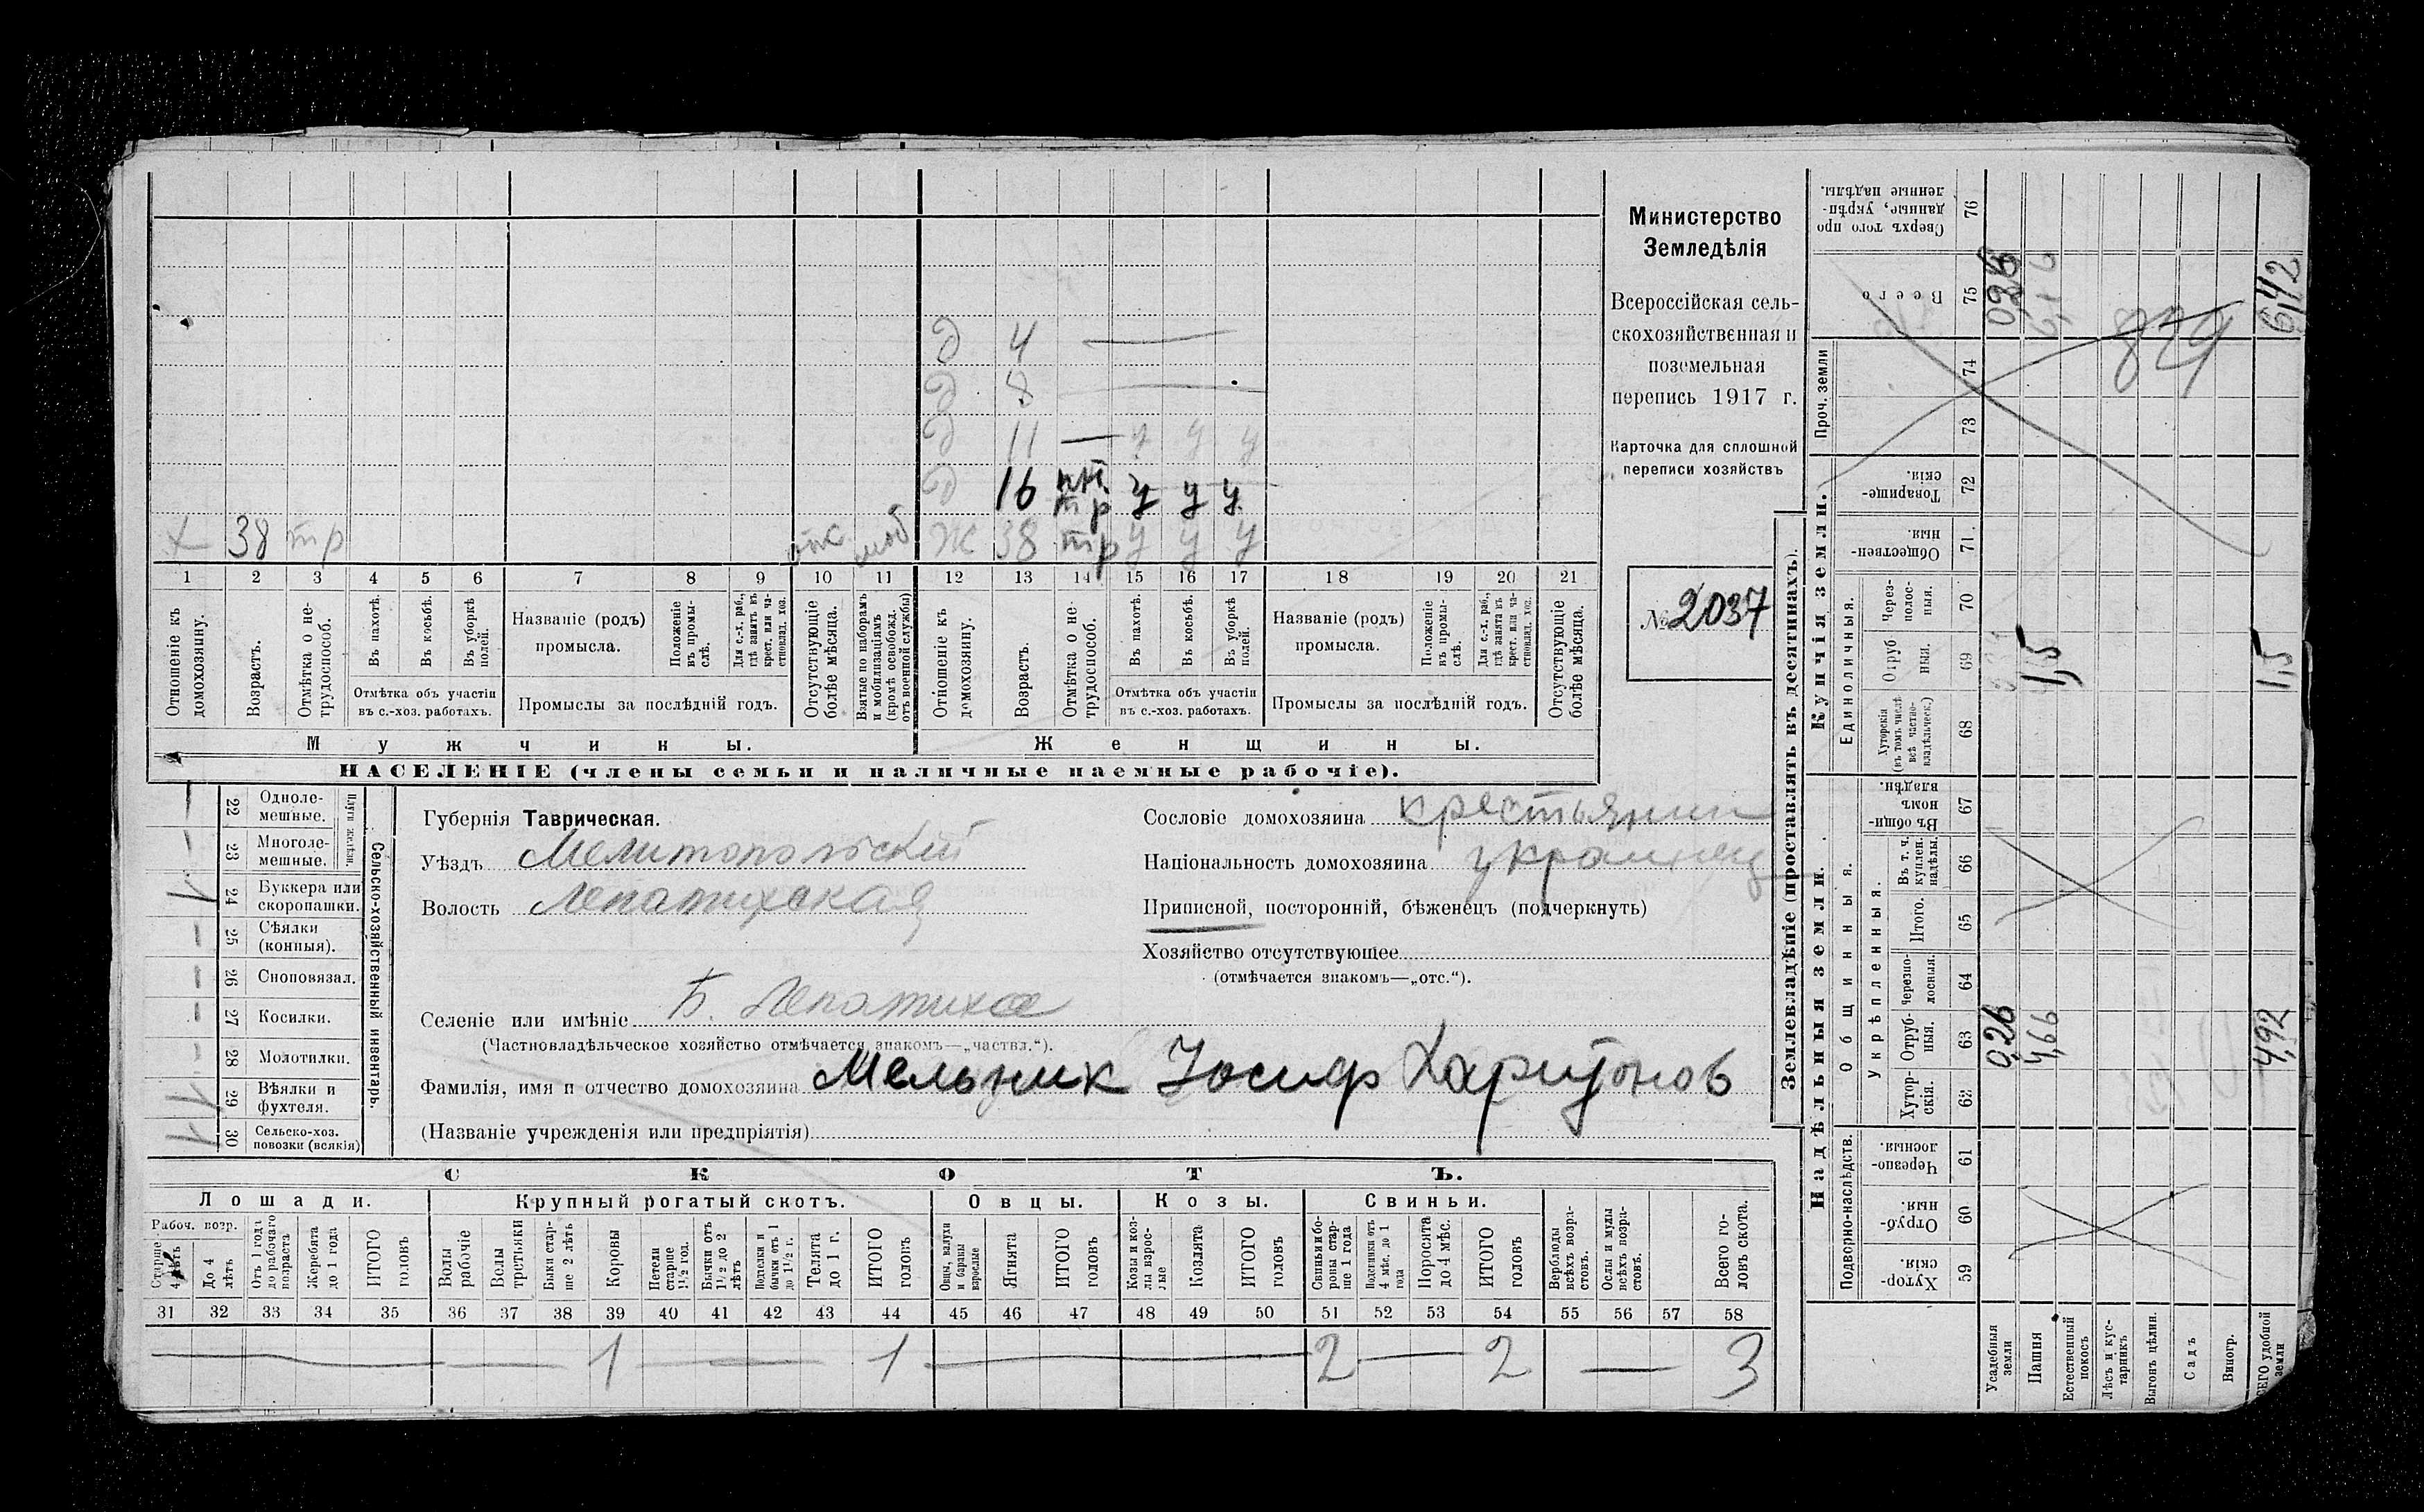 Министерство
Земледѣлія
Всероссійская сель-
скохозяйственная и
поземельная
перепись 1917 г.
Карточка для сплошной
переписи хозяйствъ
№ 2037
д 4 —
д 8 —
д 11 — у у у
д 16 пл тр у у у
х 38 тр отс моб ж 38 тр у у у
1 2 3 4 5 6 7 8 9 10 11 12 13 14 15 16 17 18 19 20 21
Отношеніе къ домохозяину.
Возрастъ.
Отмѣтка о не-трудоспособ.
Въ пахотѣ.
Въ косьбѣ.
Въ уборкѣ полей.
Отмѣтка объ участіи
въ с.-хоз. работахъ.
Названіе (родъ)
промысла.
Положеніе въ промы-слѣ.
Для с.-х. раб., гдѣ занятъ въ крест. или ча-стновлад. хоз.
Промыслы за послѣдній годъ.
Отсутствующіе болѣе мѣсяца.
Взятые по наборамъ и мобилизаціямъ (кромѣ освобожд. отъ военной службы)
Отношеніе къ домохозяину.
Возрастъ.
Отмѣтка о не-трудоспособ.
Въ пахотѣ.
Въ косьбѣ.
Въ уборкѣ полей.
Отмѣтка объ участіи
въ с.-хоз. работахъ.
Названіе (родъ)
промысла.
Положеніе въ промы-слѣ.
Для с.-х. раб., гдѣ занята въ крест. или ча-стновлад. хоз.
Промыслы за послѣдній годъ.
Отсутствующіе болѣе мѣсяца.
Мужчины. Женщины.
НАСЕЛЕНІЕ (члены семьи и наличные наемные рабочіе).
Сельско-хозяйственный инвентарь.
Плуги желѣзн.
22 Одноле-мешные. —
23 Многоле-мешные. —
24 Буккера или скоропашки. 1
25 Сѣялки (конныя). —
26 Сноповязал. —
27 Косилки. —
28 Молотилки. —
29 Вѣялки и фухтеля.
30 Сельско-хоз. повозки (всякія)
Губернія Таврическая.
Уѣздъ Мелитопольскій
Волость Лепатихская
Сословіе домохозяина крестьянин
Національность домохозяина украинец
Приписной, посторонній, бѣженецъ (подчеркнуть)
Хозяйство отсутствующее
(отмѣчается знакомъ—„отс.“).
Селеніе или имѣніе Б. Лепатиха
(Частновладѣльческое хозяйство отмѣчается знакомъ—„частвл.“).
Фамилія, имя и отчество домохозяина Мельник Іосиф Харитонов
(Названіе учрежденія или предпріятія)
СКОТЪ.
Лошади. Крупный рогатый скотъ. Овцы. Козы. Свиньи.
Рабоч. возр.
Старше 4 лѣтъ
До 4 лѣтъ
Отъ 1 года до рабочаго возраста
Жеребята до 1 года
ИТОГО головъ
Волы рабочіе
Волы третьяки
Быки стар-ше 2 лѣтъ
Коровы
Нетели старше 1½ год.
Бычки отъ 1½ до 2 лѣтъ
Подтелки и бычки отъ 1 до 1½ г.
Телята до 1 г.
ИТОГО головъ
Овцы, валухи и бараны взрослые
Ягнята
ИТОГО головъ
Козы и коз-лы взрос-лые
Козлята
ИТОГО головъ
Свиньи и бо-ровы стар-ше 1 года
Подсвинки отъ 4 мѣс. до 1 года
Поросята до 4 мѣс.
ИТОГО головъ
Верблюды всѣхъ возра-стовъ.
Ослы и мулы всѣхъ возра-стовъ.
Всего го-ловъ скота.
31 32 33 34 35 36 37 38 39 40 41 42 43 44 45 46 47 48 49 50 51 52 53 54 55 56 57 58
— — 1 — 1 — 2 — 2 — 3
Землевладѣніе (проставлять въ десятинахъ).
Надѣльныя земли. Купчія земли.
Подворно-наслѣдств.
Общинныя.
Укрѣпленныя.
Единоличныя.
Проч. земли
Хутор-скія. 59
Отруб-ныя. 60
Черезпо-лосныя. 61
Хутор-скія. 62
Отруб-ныя. 63
Черезпо-лосныя. 64
Итого. 65
Въ т. ч. куплен. надѣлы. 66
Въ общин-номъ владѣн. 67
Хуторскія (въ томъ числѣ всѣ частно-владѣльческ.) 68
Отруб-ныя. 69
Через-полос-ныя. 70
Обществен-ныя. 71
Товарище-скія. 72
73
74
Всего 75
Сверхъ того про-данные, укрѣп-ленные надѣлы. 76
Усадебныя земли 0,26 0,26
Пашня 4,66 1,5 6,16
Естественный покосъ
Лѣсъ и кус-тарникъ
Выгонъ цѣлин.
Садъ
Виногр.
ВСЕГО удобной земли 4,92 1,5 6,42
829